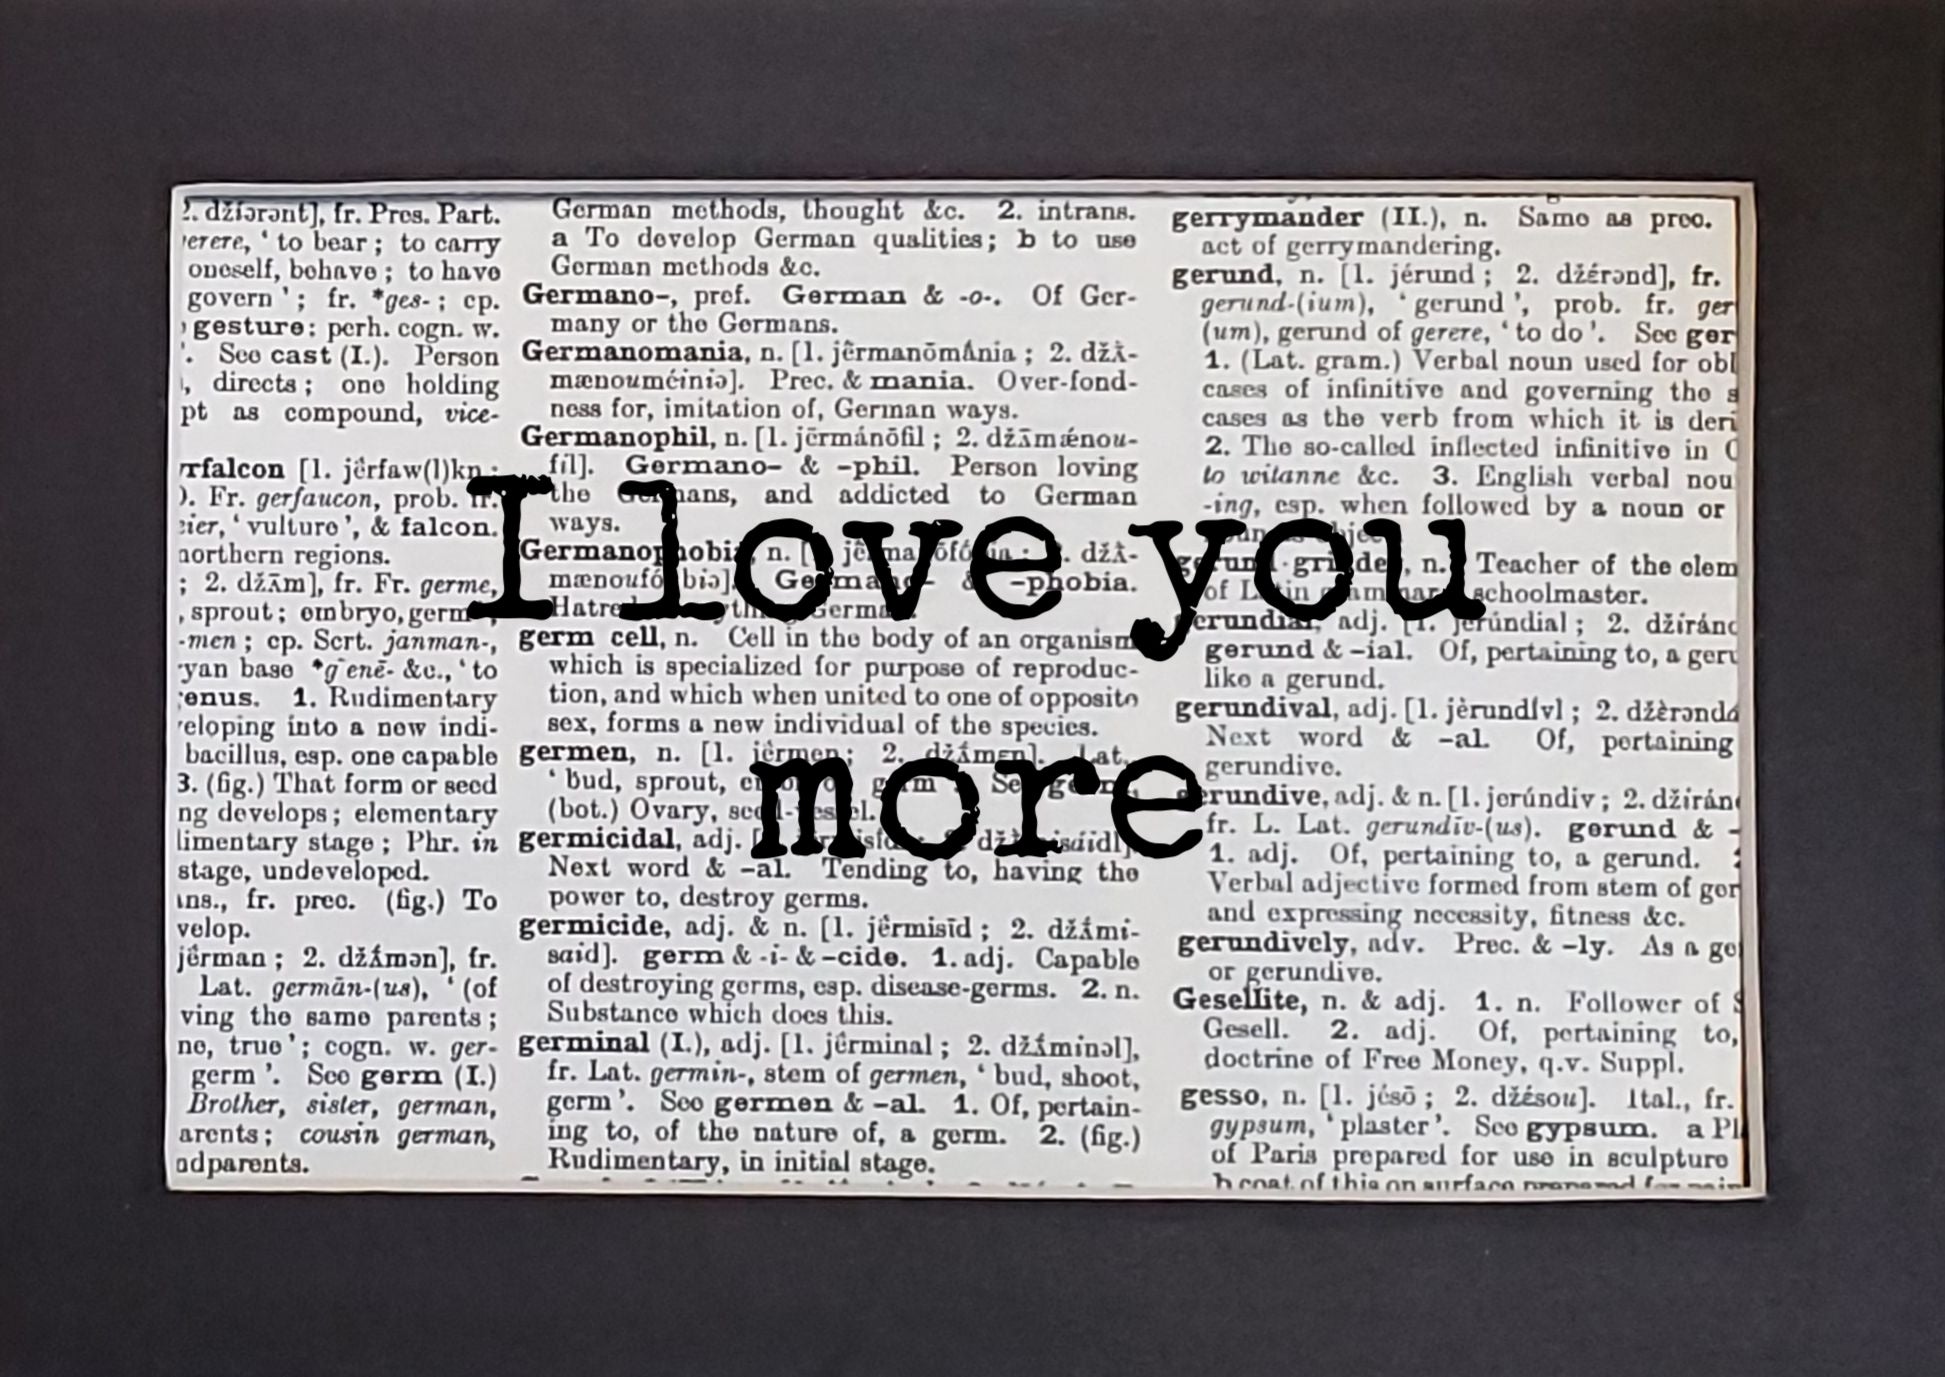 I love you
more
2. džíərənt], fr. Pres. Part.
erere, ‘to bear; to carry
oneself, behave; to have
govern’; fr. *ges-; cp.
gesture: perh. cogn. w.
’. See cast (I.). Person
, directs; one holding
pt as compound, vice-
rfalcon [1. jêrfaw(l)kn;
). Fr. gerfaucon, prob. fr.
eier, ‘vulture’, & falcon.
northern regions.
; 2. džɪ̄m], fr. Fr. germe,
, sprout; embryo, germ
-men; cp. Scrt. janman-,
yan base *g̑enē- &c., ‘to
enus. 1. Rudimentary
eloping into a new indi-
bacillus, esp. one capable
3. (fig.) That form or seed
ng develops; elementary
limentary stage; Phr. in
stage, undeveloped.
ans., fr. prec. (fig.) To
velop.
jêrman; 2. džʌ́mən], fr.
Lat. germān-(us), ‘(of
ving the same parents;
ne, true’; cogn. w. ger-
germ’. See germ (I.)
Brother, sister, german,
arents; cousin german,
adparents.
German methods, thought &c. 2. intrans.
a To develop German qualities; b to use
German methods &c.
Germano-, pref. German & -o-. Of Ger-
many or the Germans.
Germanomania, n. [1. jêrmanōmánia; 2. džʌ̀-
mænouméiniə]. Prec. & mania. Over-fond-
ness for, imitation of, German ways.
Germanophil, n. [1. jērmánōfil; 2. džʌ̄mǽnou-
fil]. Germano- & -phil. Person loving
the Germans, and addicted to German
ways.
Germanophobia, n. [1. jêrmanōfóbia; 2. džʌ̀-
mænoufóubiə]. Germano- & -phobia.
Hatred anything German.
germ cell, n. Cell in the body of an organism
which is specialized for purpose of reproduc-
tion, and which when united to one of opposite
sex, forms a new individual of the species.
germen, n. [1. jêrmen; 2. džʌ́mɛn]. Lat.,
‘bud, sprout, germ See
(bot.) Ovary, seed-vessel.
germicidal, adj.
Next word & -al. Tending to, having the
power to, destroy germs.
germicide, adj. & n. [1. jêrmisīd; 2. džʌ́mi-
said]. germ & -i- & -cide. 1. adj. Capable
of destroying germs, esp. disease-germs. 2. n.
Substance which does this.
germinal (I.), adj. [1. jêrminal; 2. džʌ́minəl],
fr. Lat. germin-, stem of germen, ‘bud, shoot,
germ’. See germen & -al. 1. Of, pertain-
ing to, of the nature of, a germ. 2. (fig.)
Rudimentary, in initial stage.
gerrymander (II.), n. Same as prec.
act of gerrymandering.
gerund, n. [1. jérund; 2. džérənd], fr.
gerund-(ium), ‘gerund’, prob. fr. ger
(um), gerund of gerere, ‘to do’. See ger
1. (Lat. gram.) Verbal noun used for obl
cases of infinitive and governing the s
cases as the verb from which it is deri
2. The so-called inflected infinitive in O
to witanne &c. 3. English verbal nou
-ing, esp. when followed by a noun or
gerund-grinder, n. Teacher of the elem
of Latin grammar; schoolmaster.
gerundial, adj. [1. jerúndial; 2. džiránd
gerund & -ial. Of, pertaining to, a geru
like a gerund.
gerundival, adj. [1. jèrundívl; 2. džèrəndá
Next word & -al. Of, pertaining
gerundive.
gerundive, adj. & n. [1. jerúndiv; 2. džirán
fr. L. Lat. gerundīv-(us). gerund & -
1. adj. Of, pertaining to, a gerund.
Verbal adjective formed from stem of ger
and expressing necessity, fitness &c.
gerundively, adv. Prec. & -ly. As a ge
or gerundive.
Gesellite, n. & adj. 1. n. Follower of S
Gesell. 2. adj. Of, pertaining to,
doctrine of Free Money, q.v. Suppl.
gesso, n. [1. jésō; 2. džésou]. Ital., fr.
gypsum, ‘plaster’. See gypsum. a Pl
of Paris prepared for use in sculpture
b coat of this on surface prepared for pain